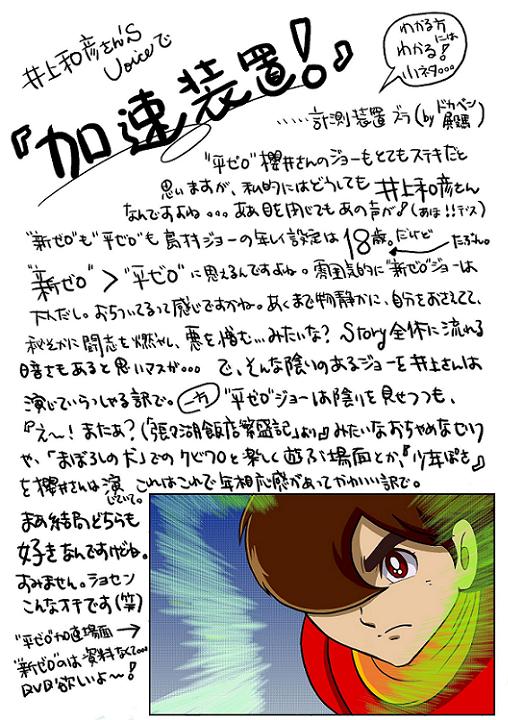 井上和彦さん'S
Voiceで
『加速装置!』
わかる方
には
わかる!
小ネタ。。。
……計測装置ズラ(by ドカベン殿馬)
"平ゼロ"櫻井さんのジョーもとてもステキだと
思いますが、私的にはどうしても井上和彦さん
なんですよね。。。ああ目を閉じてもあの声が!(あほ!!デス)
"新ゼロ"も"平ゼロ"も島村ジョーの年令設定は18歳。だけど
たぶん。
"新ゼロ">"平ゼロ"に思えるんですよね。雰囲気的に"新ゼロ"ジョーは
大人だし。おちついてるって感じですかね。あくまで物静かに、自分をおさえてて、
秘そかに闘志を燃やし、悪を憎む…みたいな?Story全体に流れる
暗さもあると思いマスが… で、そんな陰りのあるジョーを井上さんは
演じていらっしゃる訳で。一方"平ゼロ"ジョーは陰りを見せつつも、
『え〜!またぁ?(「張々湖飯店繁盛記」より)』みたいなおちゃめなセリフ
や、「まぼろしの犬」でのクビクロと楽しく遊ぶ場面とか、『少年ぽさ』
を櫻井さんは演じていて。これはこれで年相応感があってかわいい訳で。
まぁ結局どちらも
好きなんですけどね。
すみません。ショセン
こんなオチです(笑)
"平ゼロ"加速場面→
"新ゼロ"のは資料なくて…
DVD欲いよ〜!